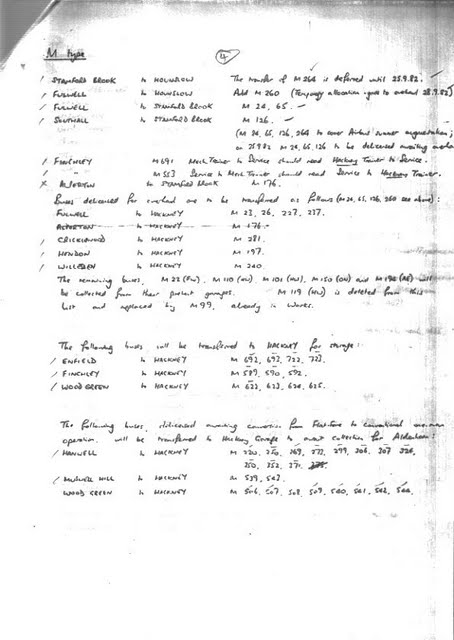 M type
4
/ STAMFORD BROOK to HOUNSLOW The transfer of M 264 is deferred until 25.9.82.
/ FULWELL to HOUNSLOW Add M 260 (Temporary allocation - goes to overhaul 28.9.82)
/ FULWELL to STAMFORD BROOK M 24, 65.
/ SOUTHALL to STAMFORD BROOK M 126.
(M 24, 65, 126, 264 to cover Airbus summer augmentation;
on 25.9.82 M 24, 65, 126 to be delicensed awaiting overhaul
/ FINCHLEY M 691 Mech Trainer to Service should read Hackney Trainer to Service.
/ " M 553 Service to Mech Trainer should read Service to Hackney Trainer.
X ALPERTON to STAMFORD BROOK M 176.
Buses delicensed for overhaul are to be transferred as follows (M 24, 65, 126, 260 see above):
FULWELL to HACKNEY M 23, 26, 227, 237.
ALPERTON to HACKNEY M 176.
/ CRICKLEWOOD to HACKNEY M 281.
/ HENDON to HACKNEY M 197.
/ WILLESDEN to HACKNEY M 240.
The remaining buses, M 22 (FW), M 110 M 101 M 150 and M 192 will
be collected from their present garages. M 119 is deleted from this
list and replaced by M 99, already in works.
The following buses will be transferred to HACKNEY for storage:
/ ENFIELD to HACKNEY M 692, 693, 722, 723.
/ FINCHLEY to HACKNEY M 589, 590, 592.
/ WOOD GREEN to HACKNEY M 622, 623, 624, 625.
The following buses, delicensed awaiting conversion from to conventional one-man
operation, will be transferred to Hackney Garage to await collection for Aldenham:
/ HANWELL to HACKNEY M 220, 250, 269, 273, 299, 306, 307
350, 352, 371,
/ MUSWELL HILL to HACKNEY M 539, 543.
WOOD GREEN to HACKNEY M 506, 507, 508, 509, 540, 541, 542, 544.